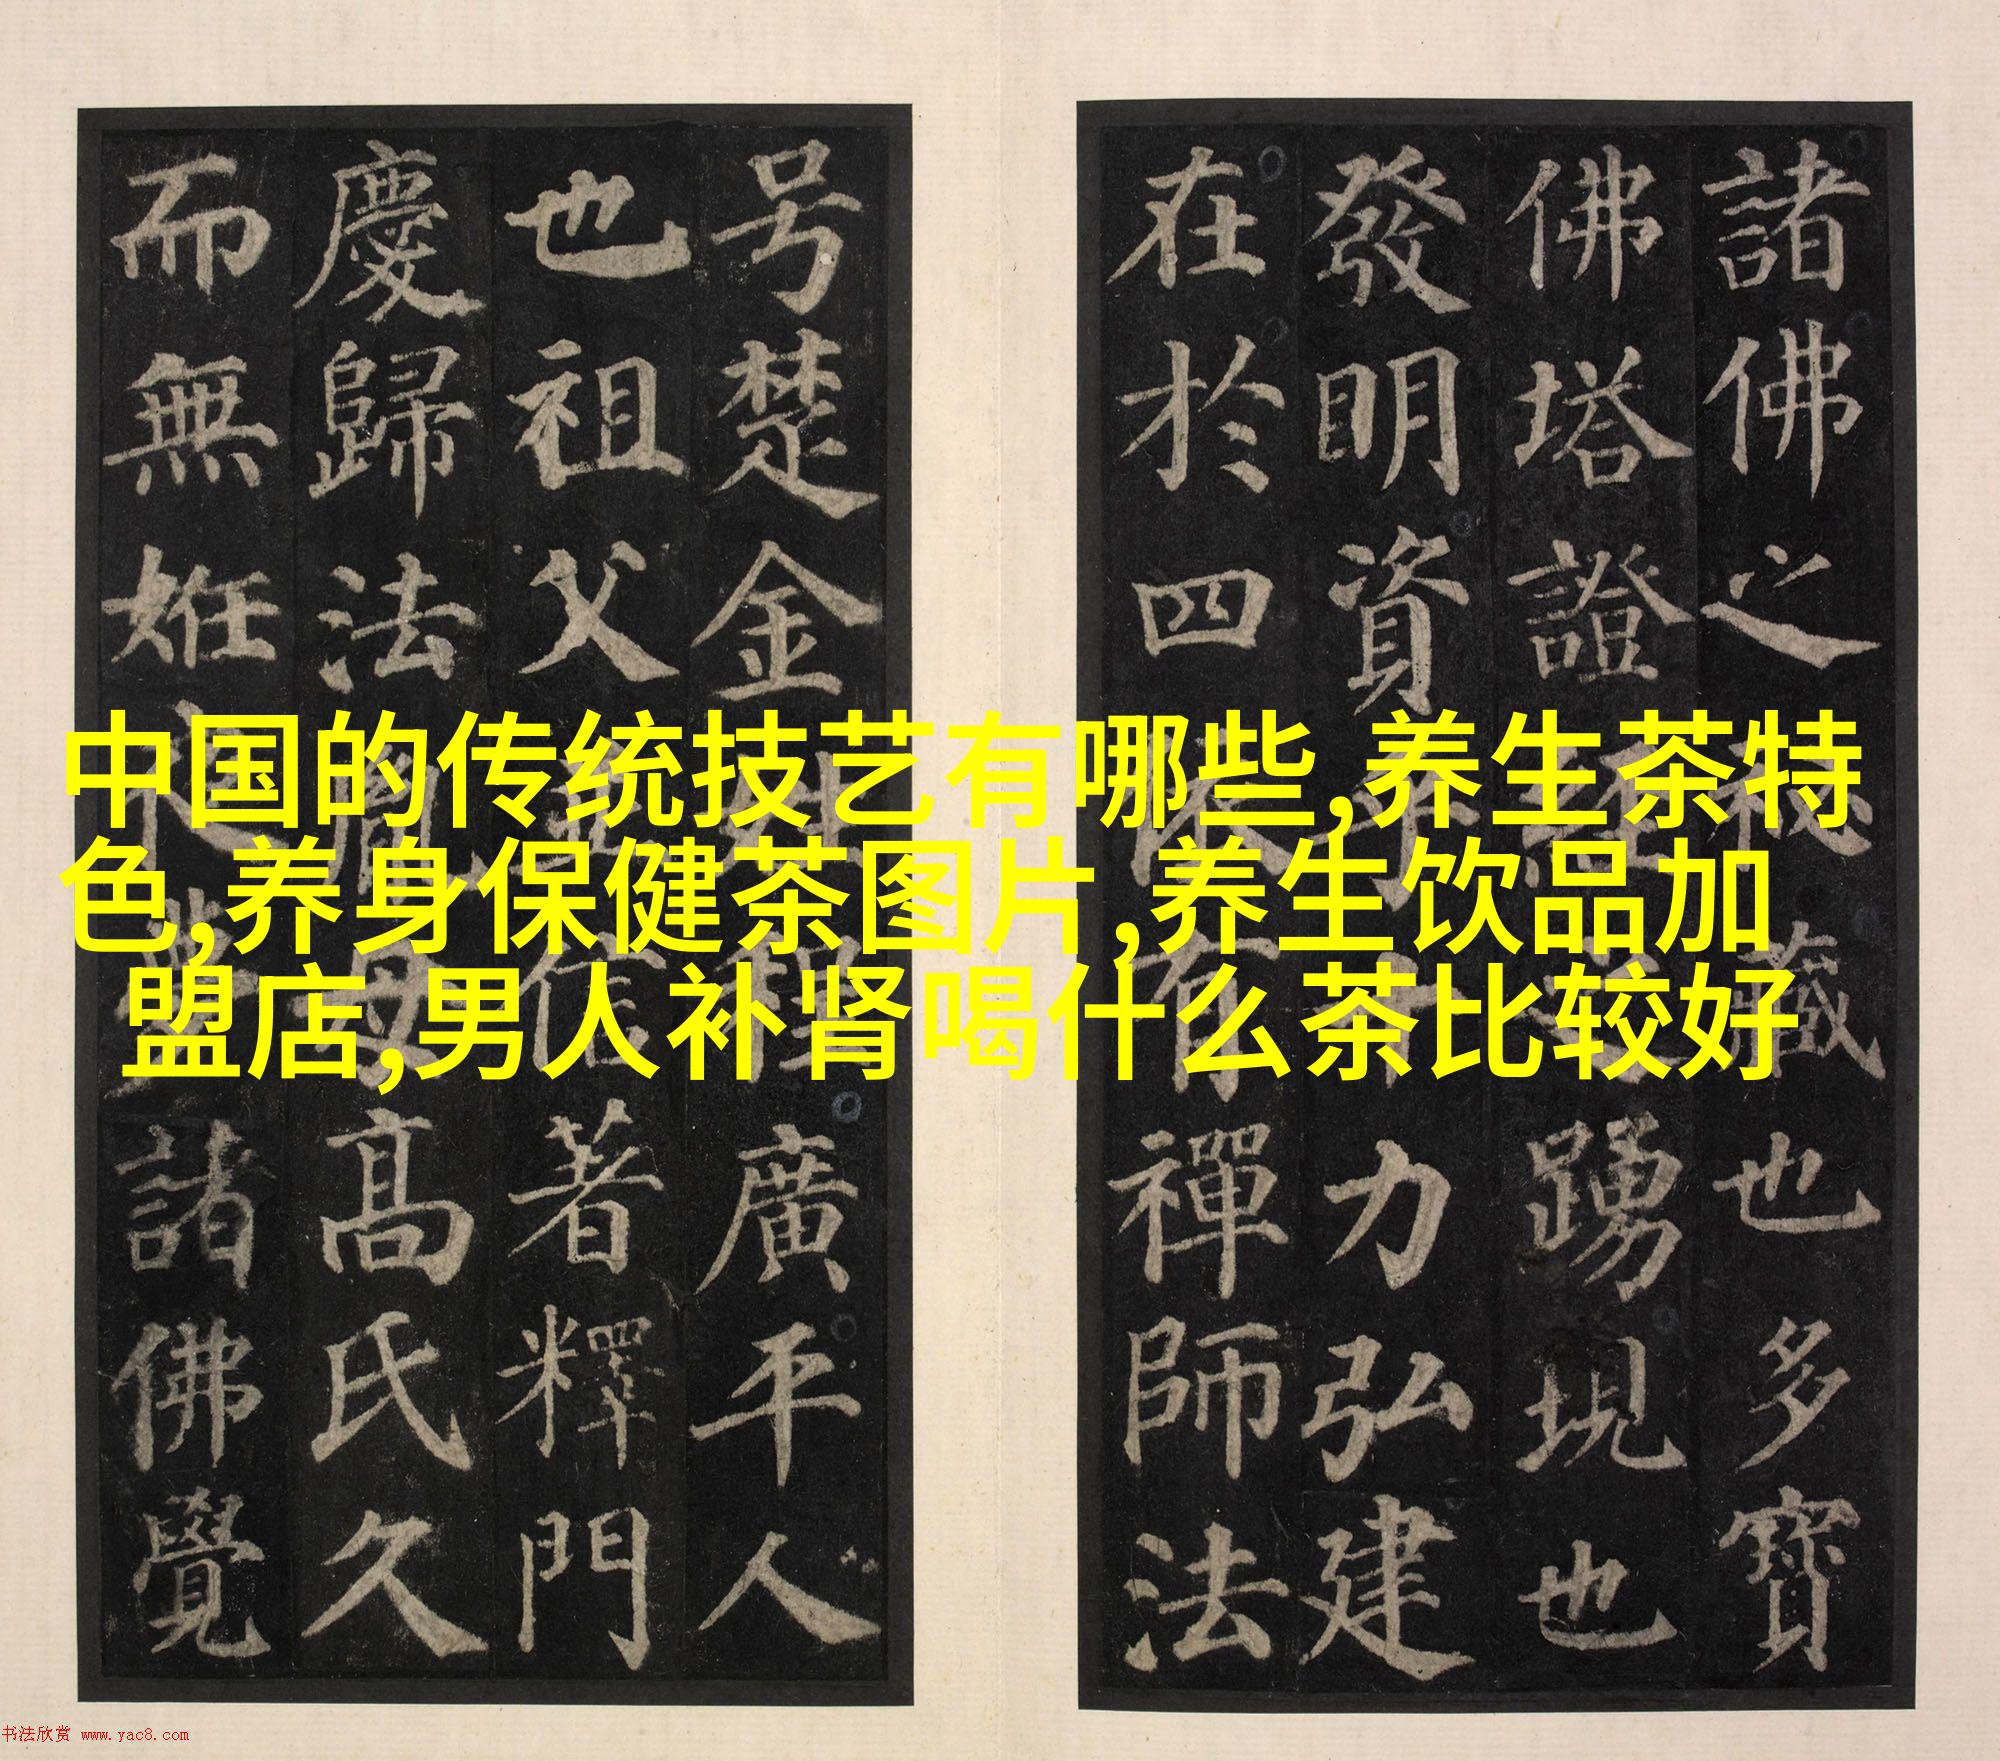 諸佛之秘藏也多寶
佛塔證經踴現也
發明資力弘建
在於四依有禪師法
号楚金姓程廣平人
也祖父信著釋門
慶歸法胤母高氏久
而無姙夜夢諸佛覺
中国的传统技艺有哪些,养生茶特
色,养身保健茶图片,养生饮品加
盟店,男人补肾喝什么茶比较好
书法欣赏 www.yac8.com